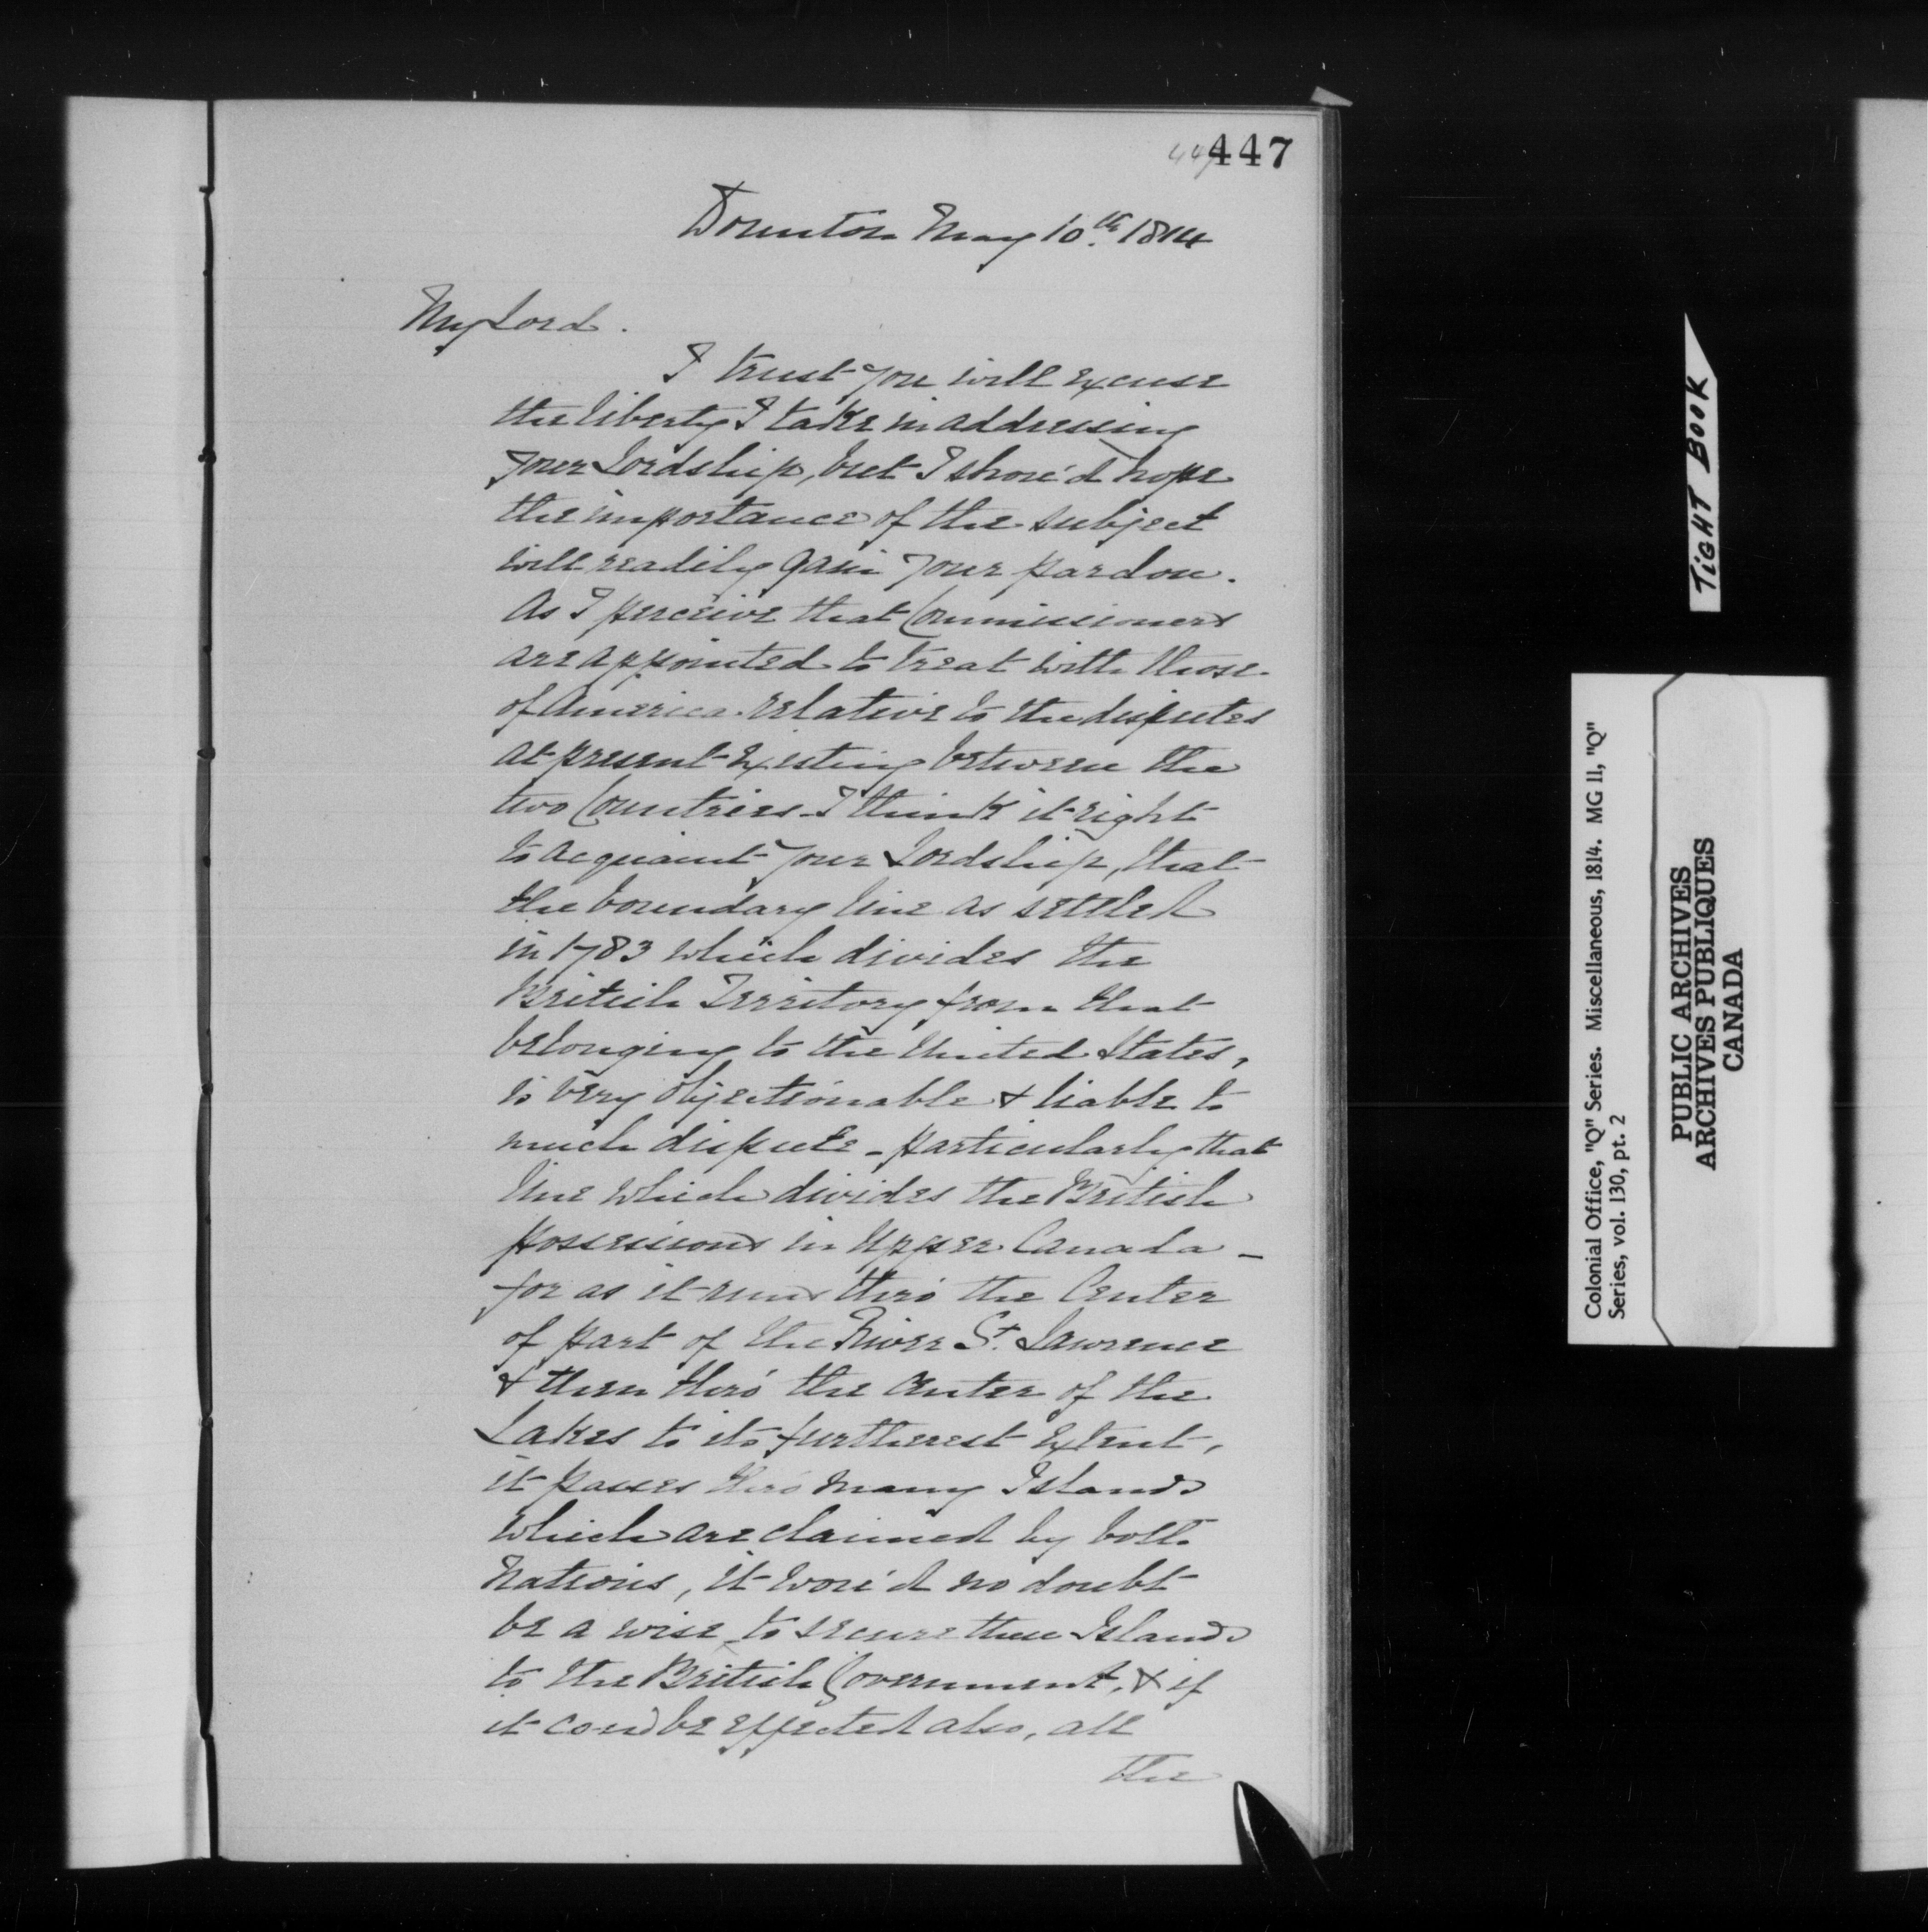 447
447
Downton May 10th 1814
My Lord.
I trust you will excuse
the liberty I take in addressing
your Lordship, but I shou'd hope
the importance of the subject
will readily gain your pardon.
As I perceive that Commissioners
are appointed to treat with those
of America relative to the disputes
at present existing between the
two Countries I think it right
to acquaint your Lordship, that
the boundary line as settled
in 1783 which divides the
British Territory from that
belonging to the United States,
is very objectionable & liable to
much dispute - particularly that
line which divides the British
possessions in Upper Canada -
for as it runs thro' the Center
of part of the River St. Lawrence
& then thro' the Center of the
Lakes to its furtherest extent,
it passes thro' many Islands
which are claimed by both
Nations, it wou'd no doubt
be a wise to secure these Islands
to the British Government, & if
it coud be effected also, all
the
TIGHT BOOK
Colonial Office, "Q" Series. Miscellaneous, 1814. MG 11, "Q"
Series, vol. 130, pt. 2
PUBLIC ARCHIVES
ARCHIVES PUBLIQUES
CANADA